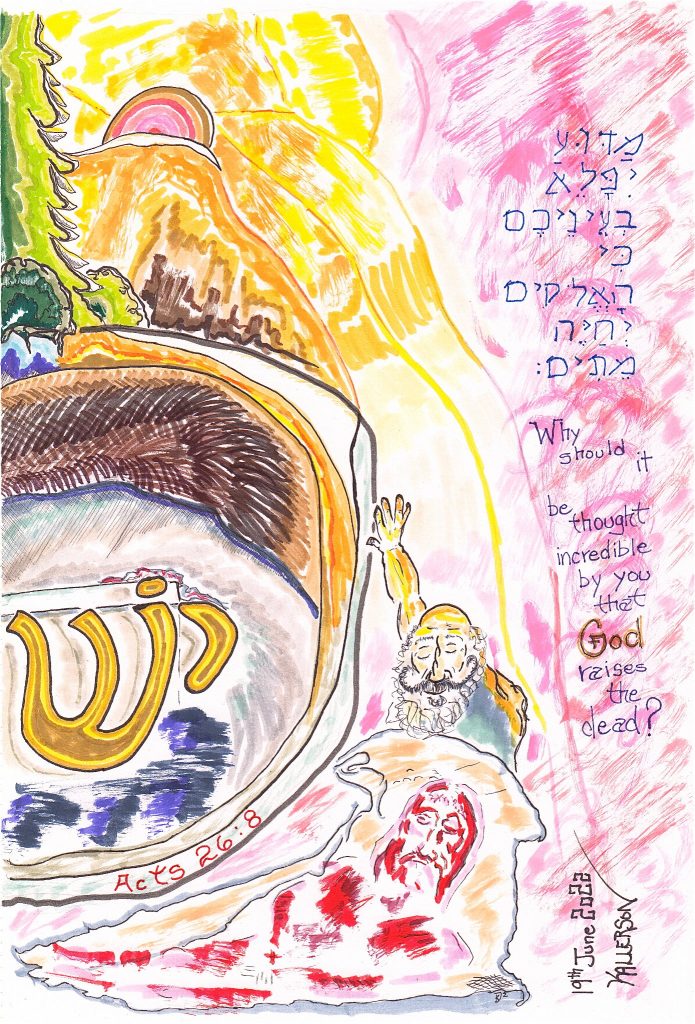 מַדּוּעַ
יִפָּלֵא
בְּעֵינֵיכֶם
כִּי
הָאֱלֹקִים
יְחַיֶּה
מֵתִים:
Why
should it
be
thought
incredible
by you
that
God
raises
the
dead?
יש
Acts 26:8
19th June 2022
KALLERSON